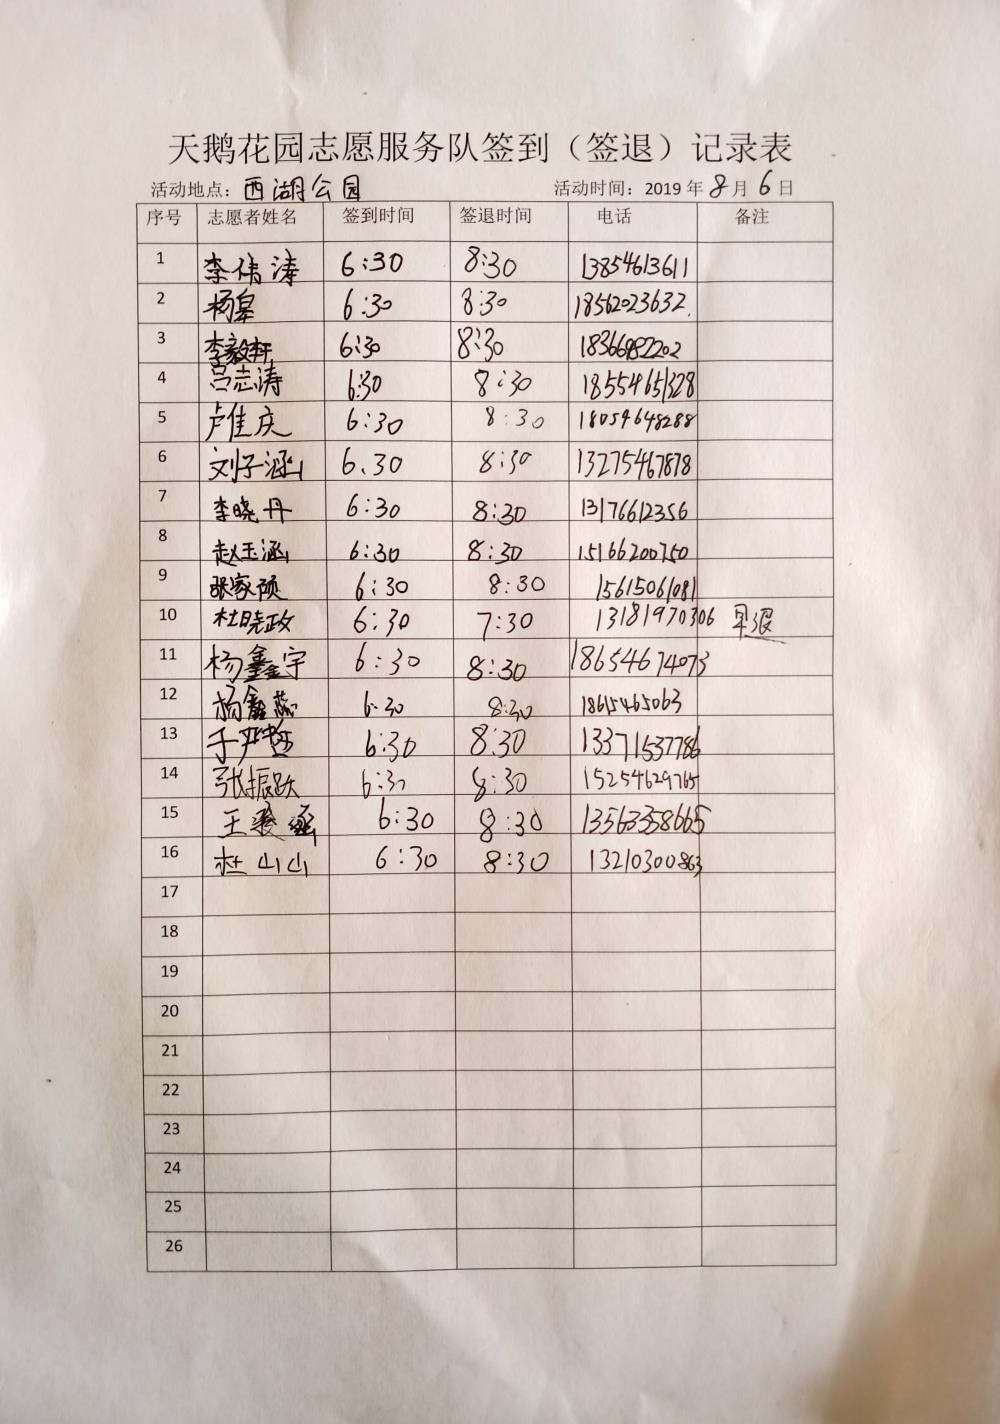 天鹅花园志愿服务队签到（签退）记录表
活动地点：西湖公园 活动时间：2019年8月6日
序号 志愿者姓名 签到时间 签退时间 电话 备注
1 李伟涛 6:30 8:30 13854613611
2 杨皋 6:30 8:30 18562023632.
3 李毅轩 6:30 8:30 18366982202
4 吕志涛 6:30 8:30 18554651328
5 卢佳庆 6:30 8:30 18054648288
6 刘子涵 6.30 8:30 13275467878
7 李晓丹 6:30 8:30 13176612356
8 赵玉涵 6:30 8:30 15166200750
9 张家硕 6:30 8:30 15615061081
10 杜晓政 6:30 7:30 13181970306 早退
11 杨鑫宇 6:30 8:30 18654674073
12 杨鑫蕊 6.30 8:30 18615465063
13 6:30 8:30 13371537786
14 张振跃 6:30 8:30 15254629765
15 6:30 8:30 13563358665
16 杜山山 6:30 8:30 13210300863
17
18
19
20
21
22
23
24
25
26